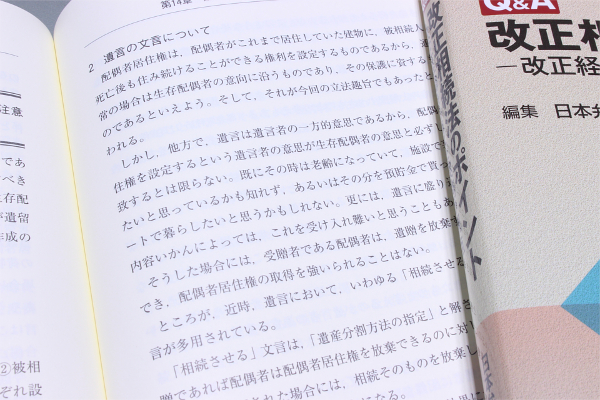 第14章
2　遺言の文言について
配偶者居住権は、配偶者がこれまで居住していた建物に、被相続人
死亡後も住み続けることができる権利を設定するものであるから、通
常の場合は生存配偶者の意向に沿うものであり、その保護に資する
のであるといえよう。そして、それが今回の立法趣旨でもあったと
われる。
しかし、他方で、遺言は遺言者の一方的意思であるから、配偶
住権を設定するという遺言者の意思が生存配偶者の意思と必ずし
致するとは限らない。既にその時は老齢になっていて、施設で
たいと思っているかも知れず、あるいはその分を預貯金で貰っ
ートで暮らしたいと思うかもしれない。更には、遺言に盛り
内容いかんによっては、これを受け入れ難いと思うこともあ
そうした場合には、受贈者である配偶者は、遺贈を放棄す
でき、配偶者居住権の取得を強いられることはない。
ところが、近時、遺言において、いわゆる「相続させる」
言が多用されている。
「相続させる」文言は、「遺産分割方法の指定」と解さ
贈であれば配偶者は配偶者居住権を放棄できるのに対し
された場合には、相続そのものを放棄し
になる。
注意
であ
べき
存配
が遺留
作成の
②被相
ぞれ設
改正相続法のポイント
日本
Q&A
改正相
―改正経
編集　日本弁